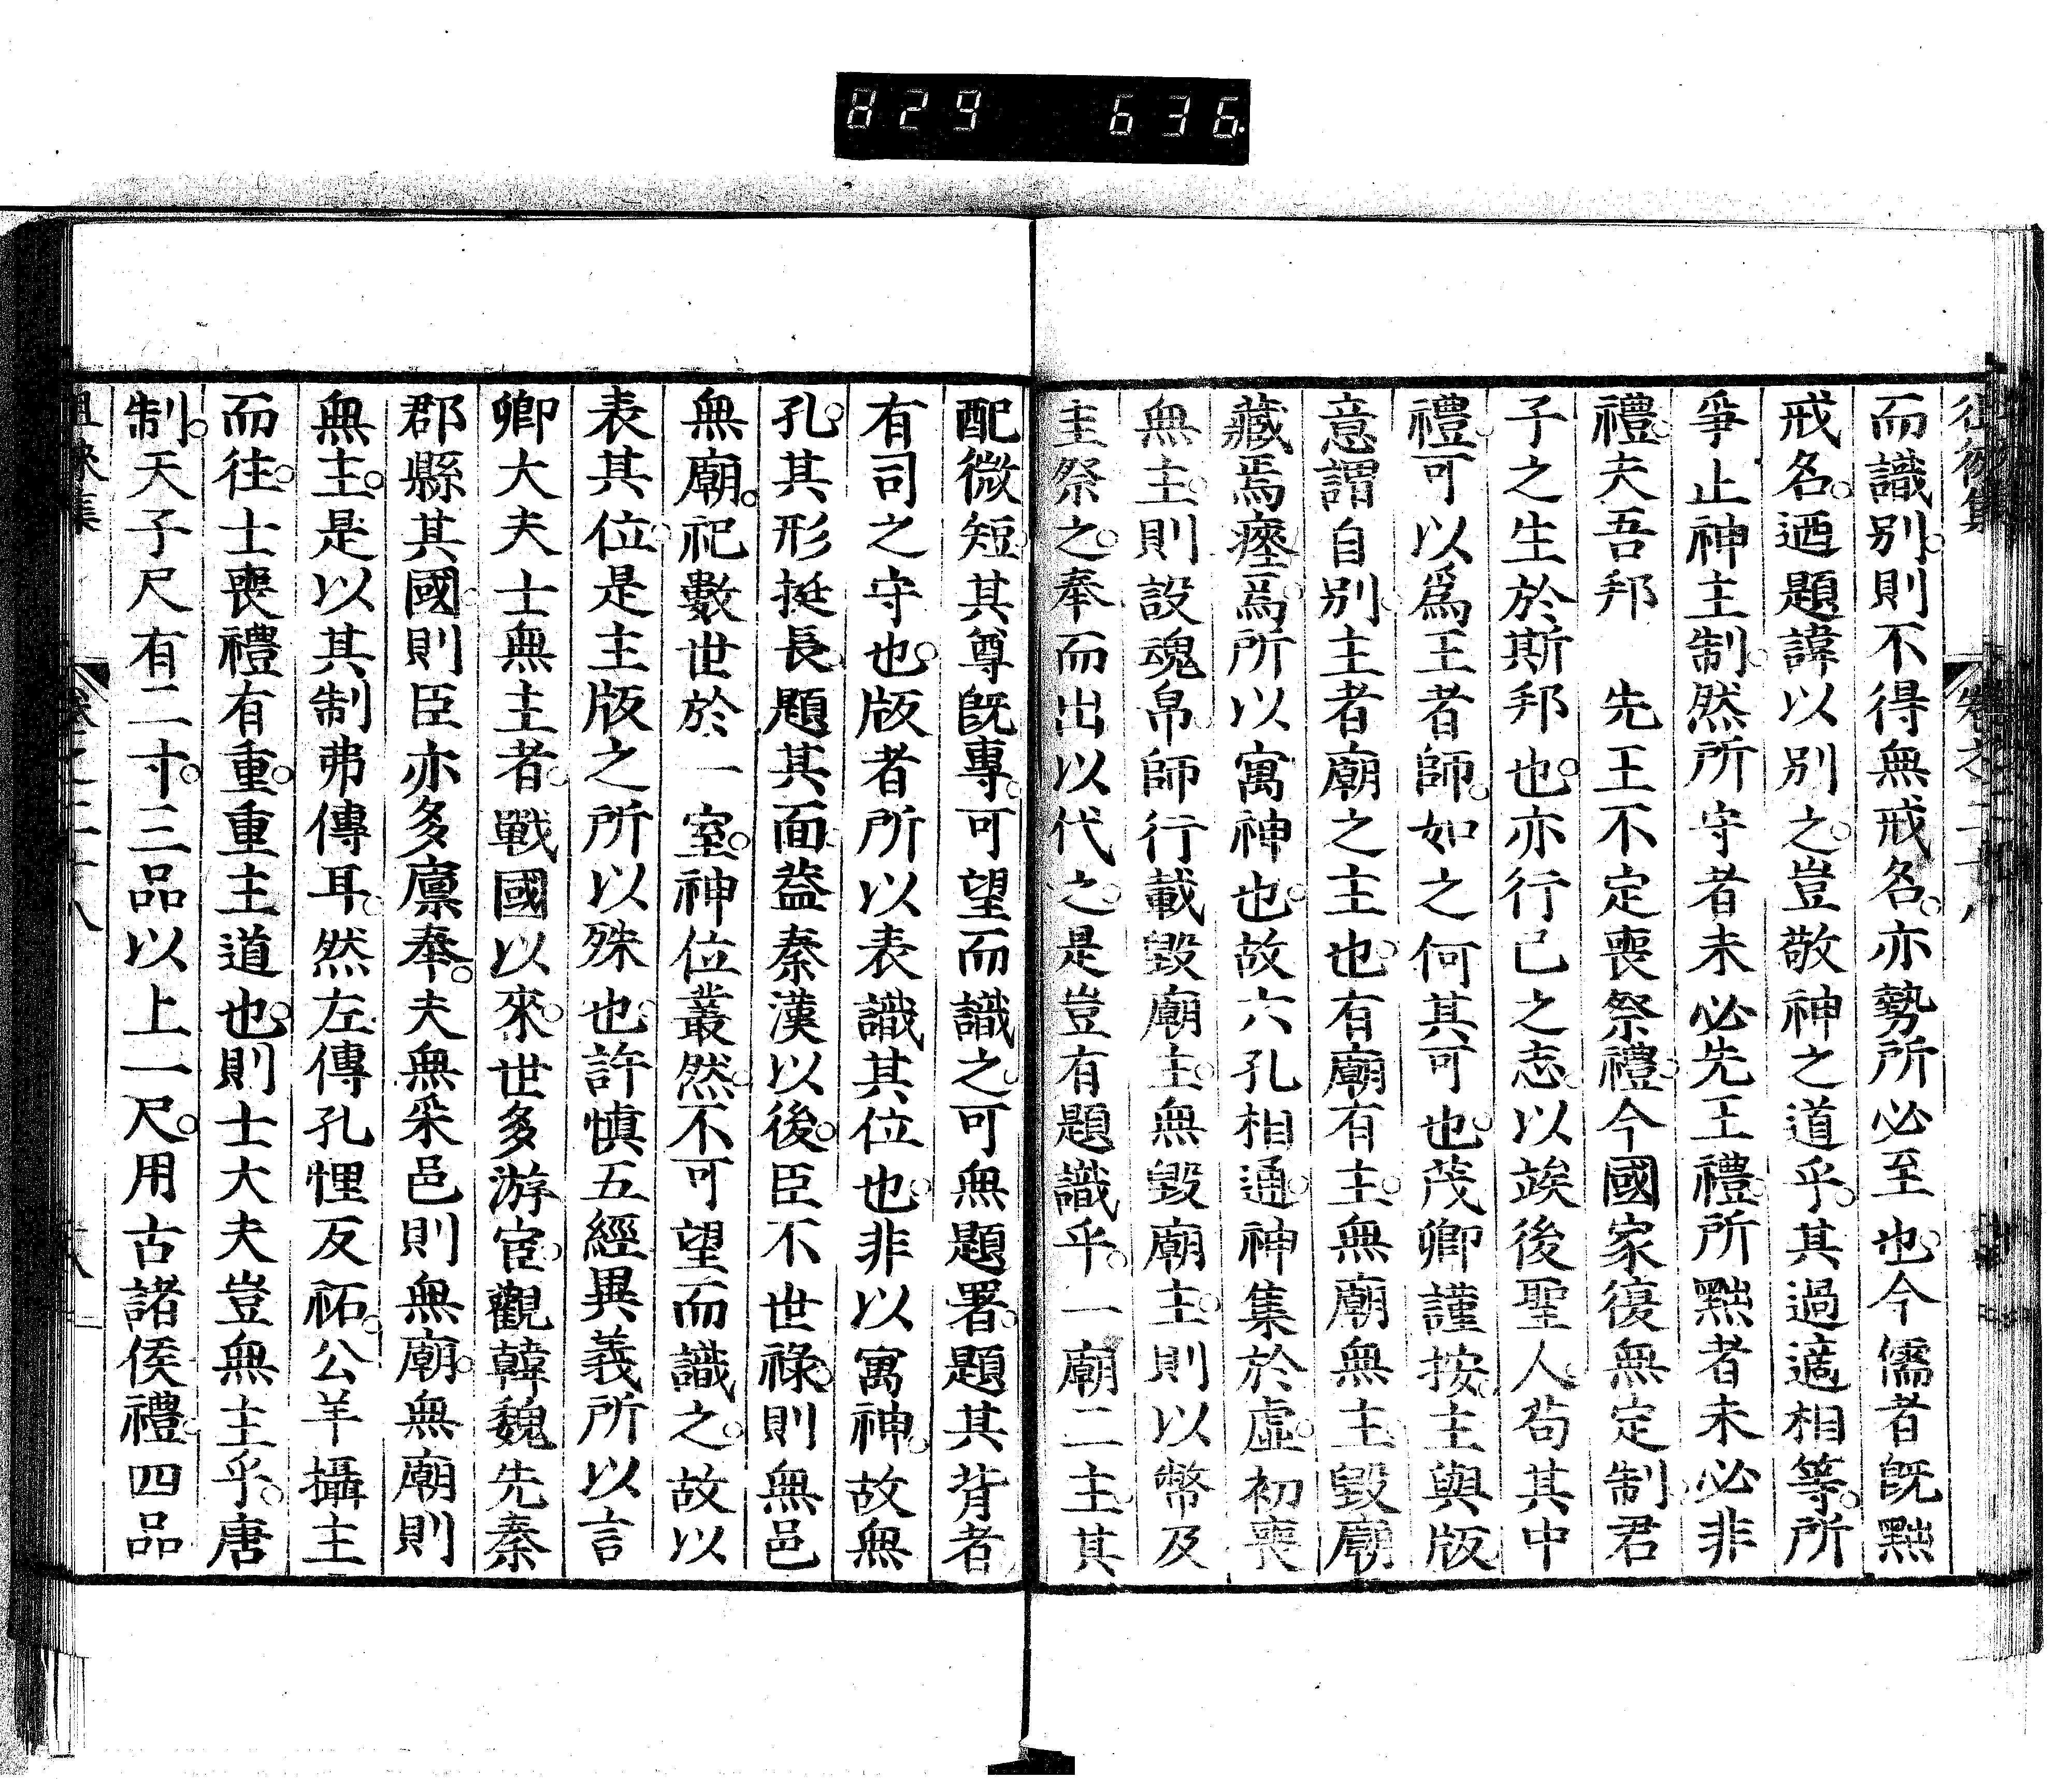 829 636
而識別。則不得無戒名。亦勢所必至也。今儒者旣黜
戒名。迺題諱以別之。豈敬神之道乎。其過適相等。所
爭止神主制。然所守者未必先王禮。所黜者未必非
禮。夫吾邦 先王不定喪祭禮。今國家復無定制。君
子之生於斯邦也。亦行己之志。以竢後聖人。苟其中
禮。可以爲王者師。如之何其可也。茂卿謹按。主與版
意謂自別。主者廟之主也。有廟有主。無廟無主。毀廟
藏焉瘞焉。所以寓神也。故六孔相通。神集於虛。初喪
無主。則設魂帛。師行載毀廟主。無毀廟主。則以幣及
圭祭之。奉而出以代之。是豈有題識乎。一廟二主。其
配微短。其尊旣專。可望而識之。可無題署。題其背者
有司之守也。版者所以表識其位也。非以寓神。故無
孔。其形挺長。題其面。葢秦漢以後。臣不世祿。則無邑
無廟。祀數世於一室。神位叢然。不可望而識之。故以
表其位。是主版之所以殊也。許愼五經異義所以言
卿大夫士無主者。戰國以來。世多游宦。觀韓魏先秦
郡縣其國。則臣亦多廩奉。夫無采邑則無廟。無廟則
無主。是以其制弗傳耳。然左傳孔悝反祏。公羊攝主
而往。士喪禮有重。重主道也。則士大夫豈無主乎。唐
制。天子尺有二寸。三品以上一尺。用古諸侯禮。四品